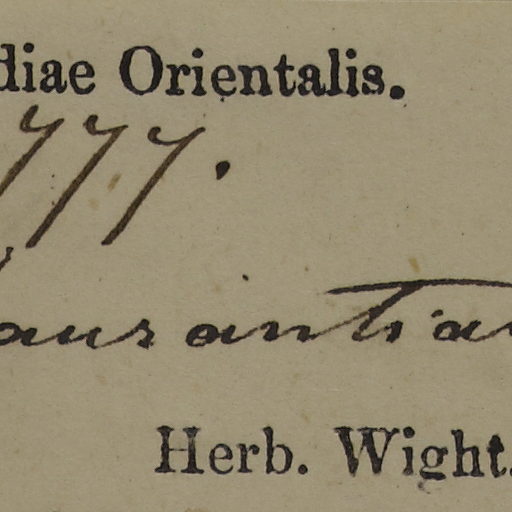 diae Orientalis.
777.
aurantia
Herb. Wight.